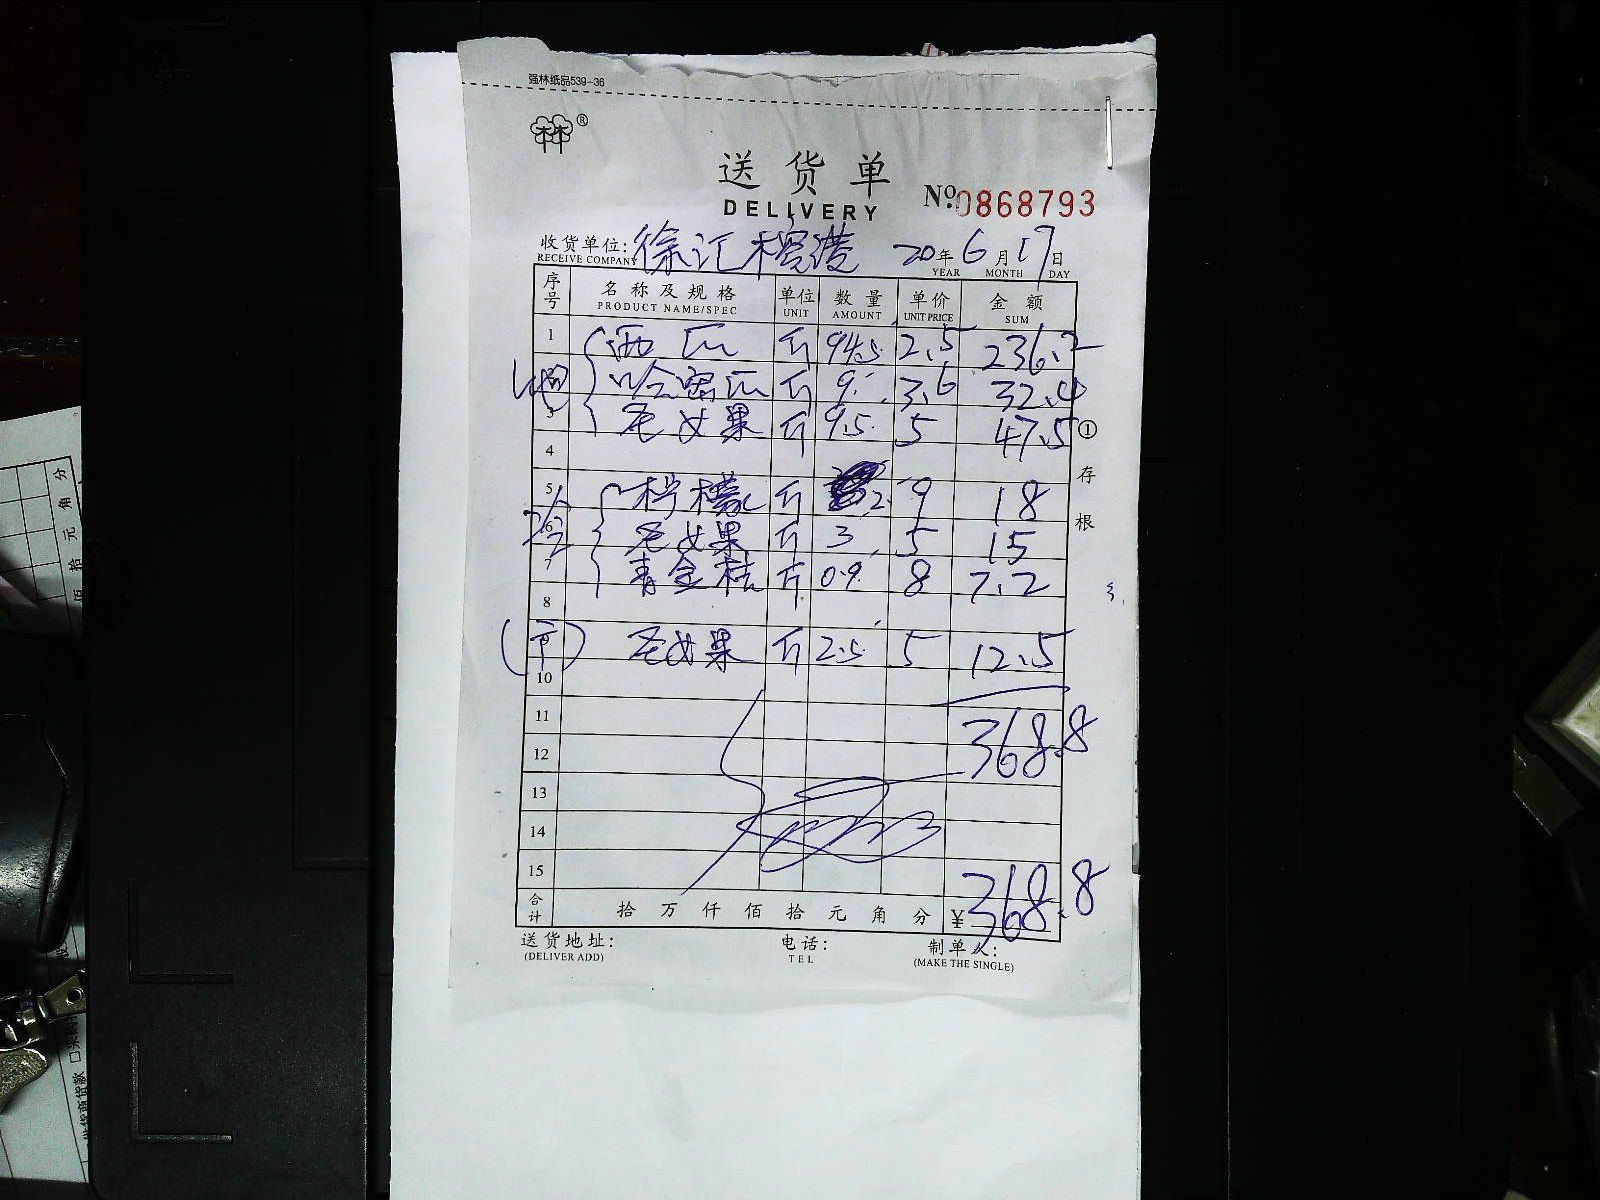 强林纸品539-36
林®
送货单
DELIVERY
No:0868793
收货单位:徐汇榕港 20年6月17日
RECEIVE COMPANY YEAR MONTH DAY
序号 名称及规格 单位 数量 单价 金额
PRODUCT NAME/SPEC UNIT AMOUNT UNIT PRICE SUM
1 西瓜 斤 94.5 2.5 236.2
哈密瓜 斤 9 3.6 32.4
3 毛女果 斤 9.5 5 47.5
4
5 柠檬 斤 2 9 18
6 毛女果 斤 3 5 15
7 青金桔 斤 0.9 8 7.2
8
毛女果 斤 2.5 5 12.5
10
11 368.8
12
13
14
15
合计 拾万仟佰拾元角分 ¥368.8
①存根
送货地址: 电话: 制单人:
(DELIVER ADD) TEL (MAKE THE SINGLE)